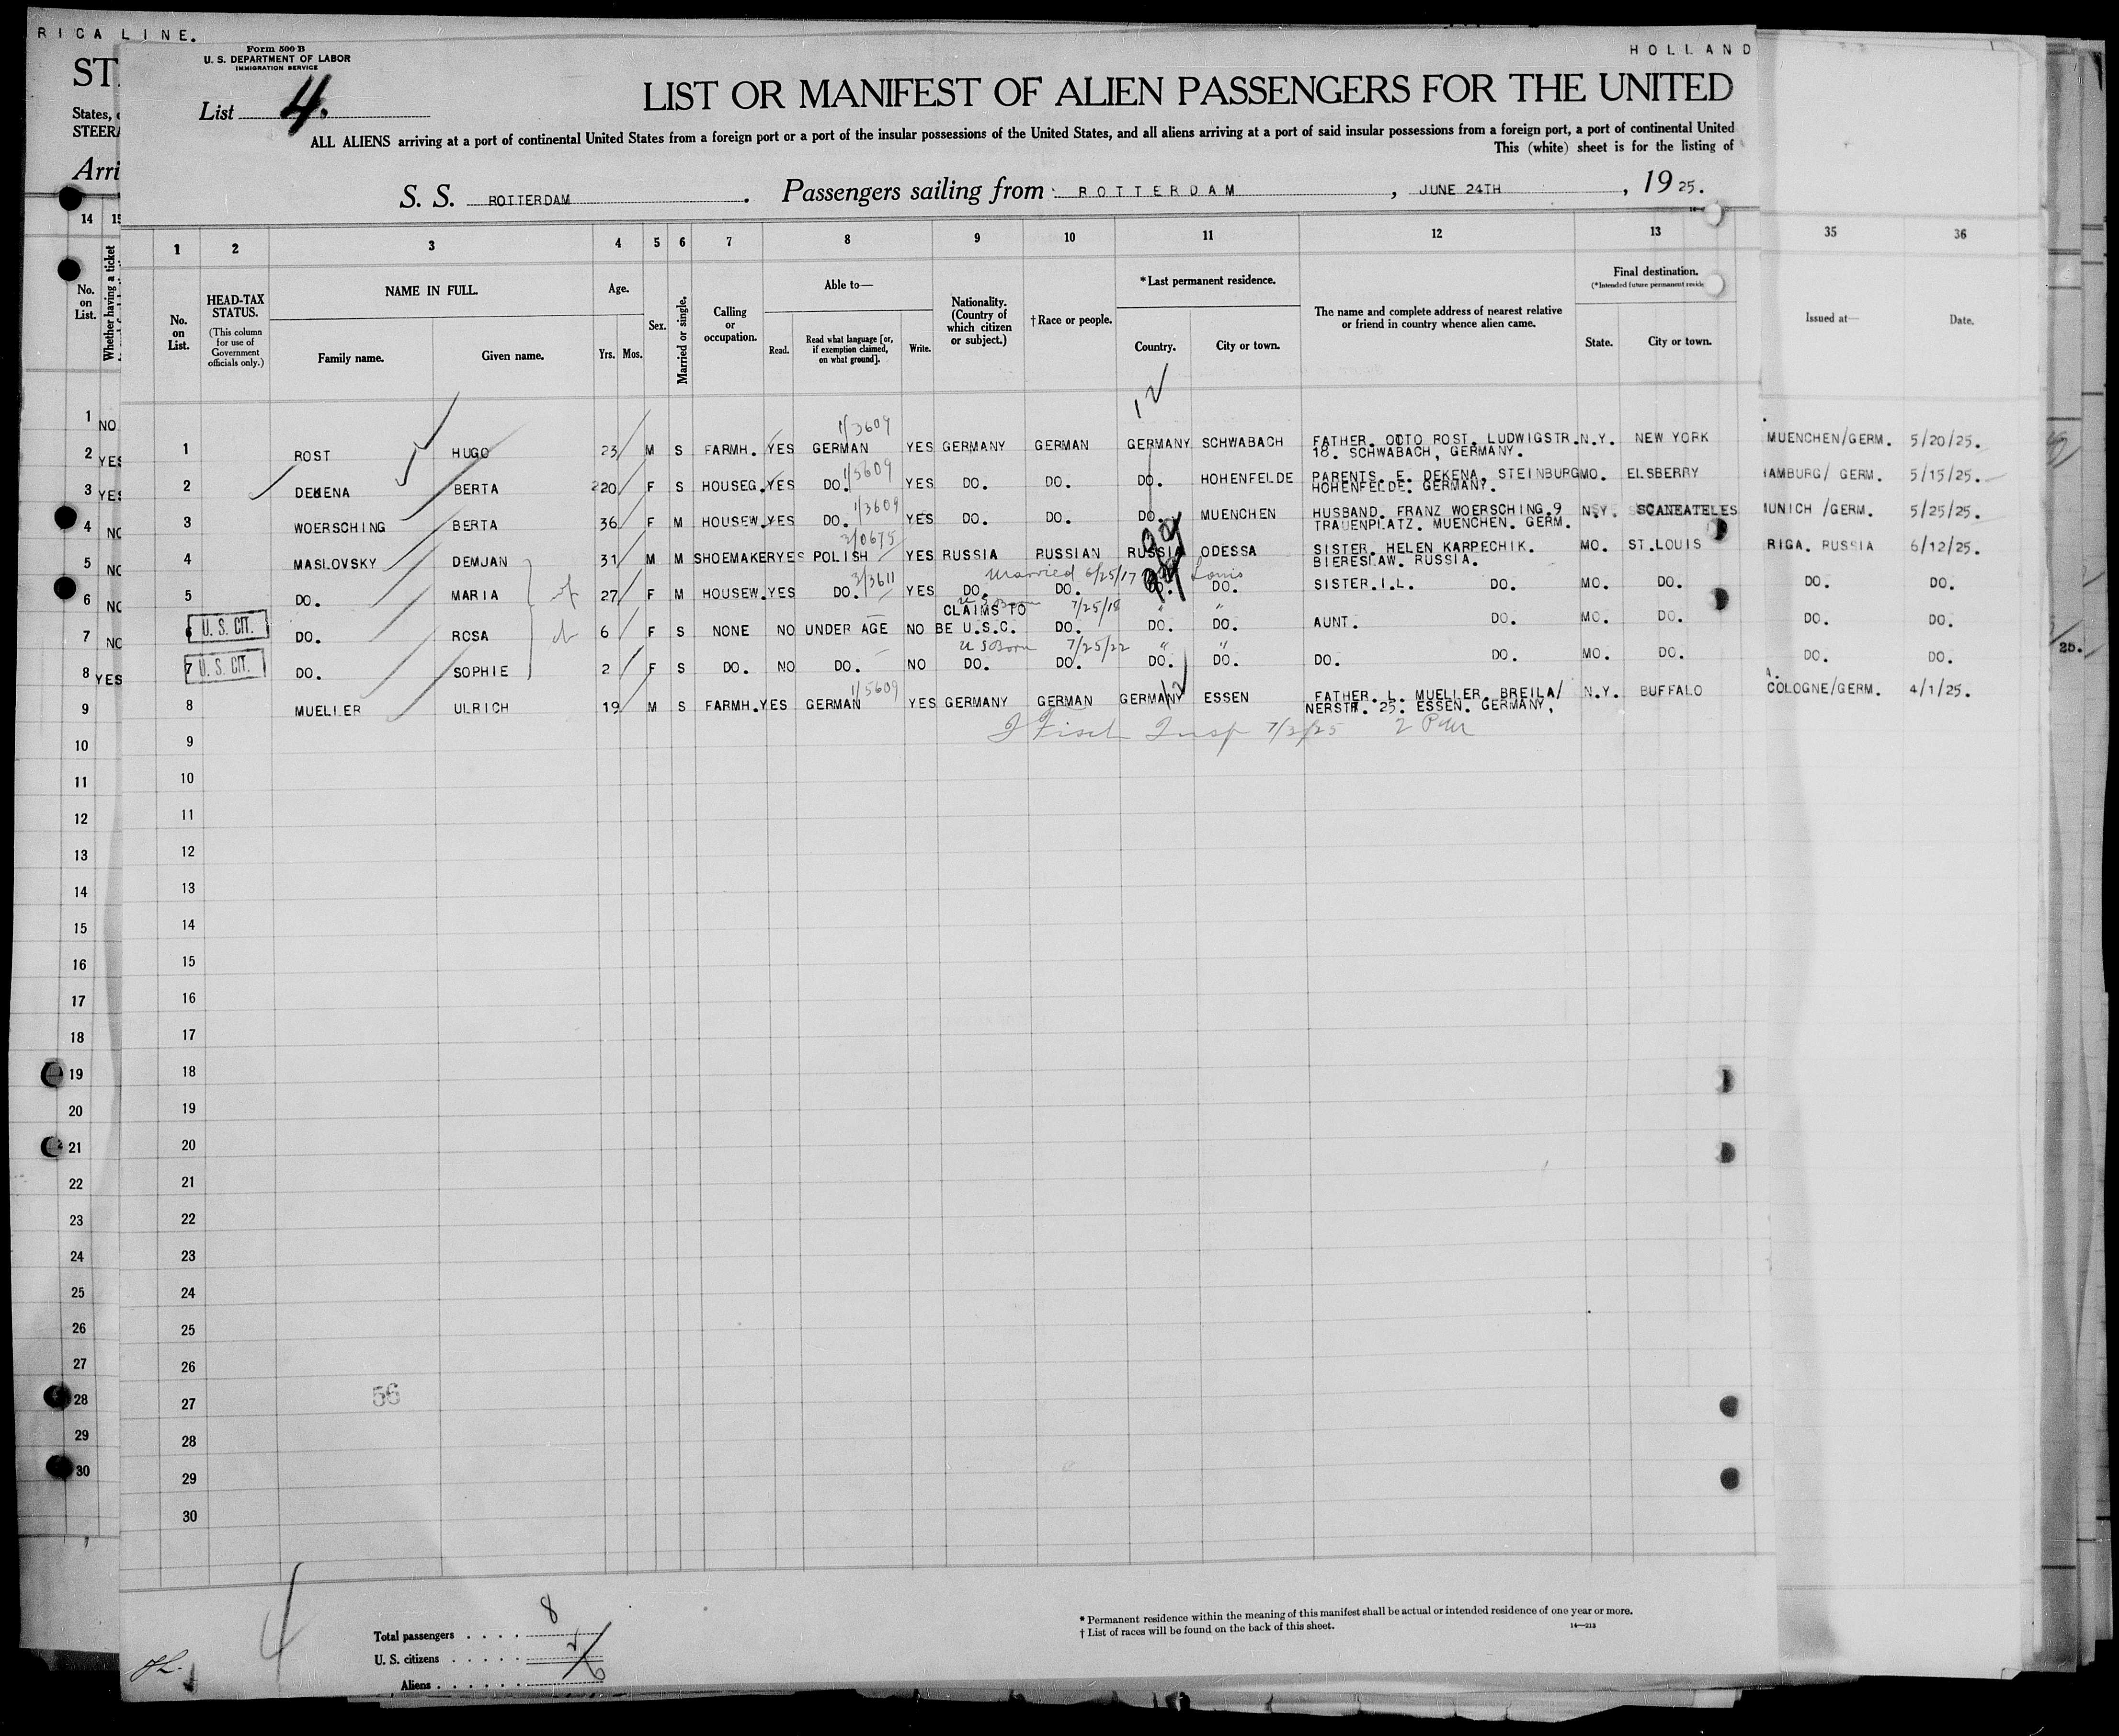 RICA LINE.
Form 500 B
U. S. DEPARTMENT OF LABOR
IMMIGRATION SERVICE
HOLLAND
ST
List 4.
LIST OR MANIFEST OF ALIEN PASSENGERS FOR THE UNITED
States,
STEERA
ALL ALIENS arriving at a port of continental United States from a foreign port or a port of the insular possessions of the United States, and all aliens arriving at a port of said insular possessions from a foreign port, a port of continental United
This (white) sheet is for the listing of
Arri
S. S. ROTTERDAM. Passengers sailing from ROTTERDAM, JUNE 24TH, 1925.
14 15 1 2 3 4 5 6 7 8 9 10 11 12 13 35 36
No. on List. Whether having a ticket
No. on List.
HEAD-TAX STATUS.
(This column for use of Government officials only.)
NAME IN FULL.
Family name. Given name.
Age.
Yrs. Mos.
Sex.
Married or single.
Calling or occupation.
Able to—
Read. Read what language [or, if exemption claimed, on what ground]. Write.
Nationality. (Country of which citizen or subject.)
† Race or people.
* Last permanent residence.
Country. City or town.
The name and complete address of nearest relative or friend in country whence alien came.
Final destination.
(* Intended future permanent reside
State. City or town.
Issued at— Date.
12
1/3609
1 ROST HUGO 23 M S FARMH. YES GERMAN YES GERMANY GERMAN GERMANY SCHWABACH FATHER. OCTO ROST. LUDWIGSTR. N.Y. NEW YORK MUENCHEN/GERM. 5/20/25.
18. SCHWABACH, GERMANY.
1/5609
2 DEKENA BERTA 20 F S HOUSEG. YES DO. YES DO. DO. DO. HOHENFELDE PARENTS. E. DEKENA, STEINBURG MO. ELSBERRY HAMBURG/ GERM. 5/15/25.
HOHENFELDE. GERMANY.
1/3609
3 WOERSCHING BERTA 36 F M HOUSEW. YES DO. YES DO. DO. DO. MUENCHEN HUSBAND. FRANZ WOERSCHING.9 N.Y. SCANEATELES MUNICH /GERM. 5/25/25.
TRAUENPLATZ. MUENCHEN. GERM.
2/0675
4 MASLOVSKY DEMJAN 31 M M SHOEMAKER YES POLISH YES RUSSIA RUSSIAN RUSSIA ODESSA SISTER. HELEN KARPECHIK. MO. ST.LOUIS RIGA. RUSSIA 6/12/25.
BIERESLAW. RUSSIA.
Married 6/25/17 Louis
3/3611
5 DO. MARIA wf 27 F M HOUSEW. YES DO. YES DO. DO. DO. DO. SISTER.I.L. DO. MO. DO. DO. DO.
U S Born 7/25/18 " "
U. S. CIT.
6 DO. ROSA ch 6 F S NONE NO UNDER AGE NO CLAIMS TO BE U.S.C. DO. DO. DO. AUNT. DO. MO. DO. DO. DO.
U S Born 7/25/22 " "
U. S. CIT.
7 DO. SOPHIE 2 F S DO. NO DO. NO DO. DO. DO. DO. DO. DO. MO. DO. DO. DO.
1/5609
12
8 MUELLER ULRICH 19 M S FARMH. YES GERMAN YES GERMANY GERMAN GERMANY ESSEN FATHER. L. MUELLER. BREILA/ N.Y. BUFFALO COLOGNE/GERM. 4/1/25.
NERSTR. 25. ESSEN. GERMANY,
Insp 7/3/25 2
1 NO
2 YES
3 YES
4 NO
5 NO
6 NO
7 NO
8 YES
9
10
11
12
13
14
15
16
17
18
19
20
21
22
23
24
25
26
27
28
29
30
9
10
11
12
13
14
15
16
17
18
19
20
21
22
23
24
25
26
27
28
29
30
25.
56
4
Total passengers 8
U. S. citizens 2
Aliens 6
* Permanent residence within the meaning of this manifest shall be actual or intended residence of one year or more.
† List of races will be found on the back of this sheet.
14—213